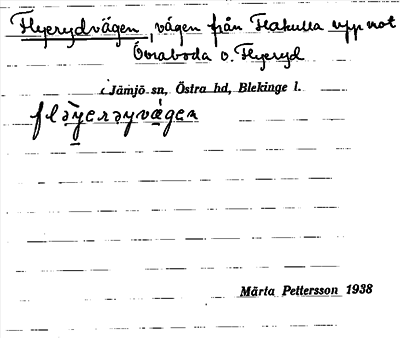 Flyerydvägen, vägen från Hakulla upp mot
Övraboda o. Flyeryd
i Jämjö sn, Östra hd, Blekinge l.
fləyerəyvägen
Märta Pettersson 1938